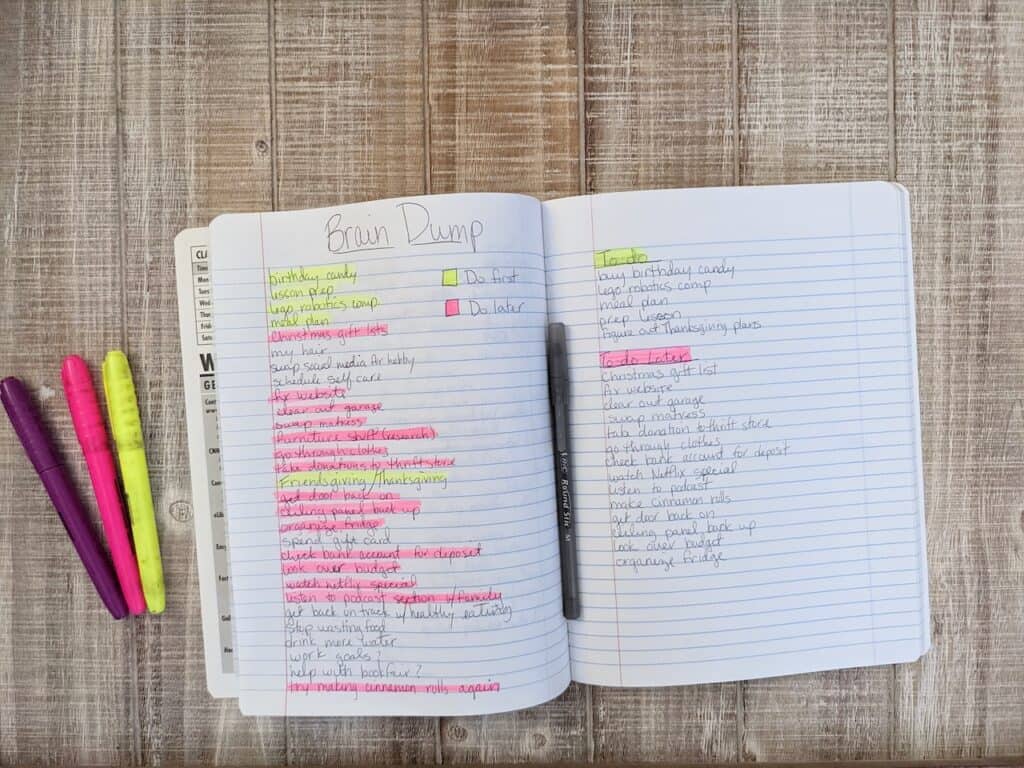 Brain Dump
birthday candy
lesson prep
lego robotics comp.
meal plan
Christmas gift lists
my hair
swap social media for hobby
schedule self care
fix website
clear out garage
swap matress
furniture stuff (research)
go through clothes
take donations to thrift store
Friendsgiving/Thanksgiving
get door back on
ceiling panel back up
organize fridge
spend gift card
check bank account for deposit
look over budget
watch netflix special
listen to podcast section w/family
get back on track w/ healthy eating
stop wasting food
drink more water
work goals?
help with bookfair?
try making cinnamon rolls again
Do first
Do later
To-do
buy birthday candy
lego robotics comp
meal plan
prep lesson
figure out Thanksgiving plans
To-do later
Christmas gift list
fix website
clear out garage
swap matress
take donation to thrift store
go through clothes
check bank account for deposit
watch Netflix special
listen to podcast
make cinnamon rolls
get door back on
ceiling panel back up
look over budget
organize fridge
CLA
Time
Mon
Tues
Wed
Thu
Frid
Satu
W
GE